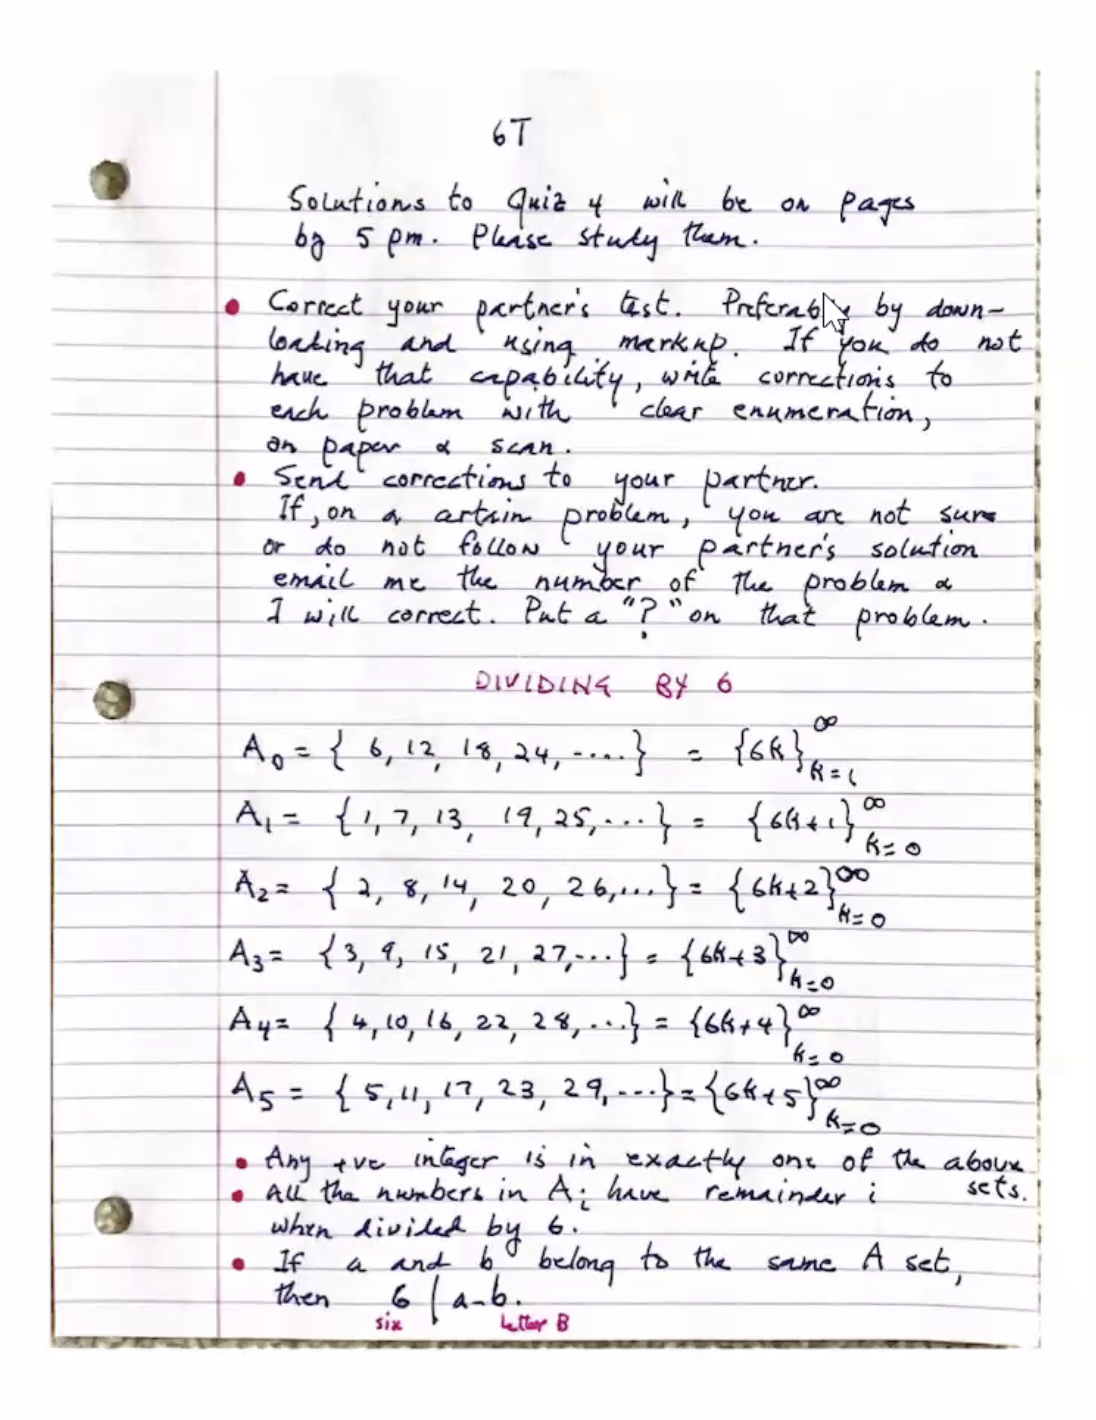 6T
Solutions to Quiz 4 will be on pages
by 5 pm. Please study them.
• Correct your partner's test. Preferably by down-
loading and using markup. If you do not
have that capability, write corrections to
each problem with clear enumeration,
on paper & scan.
• Send corrections to your partner.
If, on a certain problem, you are not sure
or do not follow your partner's solution
email me the number of the problem &
I will correct. Put a "?" on that problem.
DIVIDING BY 6
A₀ = { 6, 12, 18, 24, ....} = {6k}∞k=1
A₁ = {1, 7, 13, 19, 25, ...} = {6k+1}∞k=0
A₂ = { 2, 8, 14, 20, 26, ...} = {6k+2}∞k=0
A₃ = {3, 9, 15, 21, 27, ...} = {6k+3}∞k=0
A₄ = { 4, 10, 16, 22, 28, ...} = {6k+4}∞k=0
A₅ = { 5, 11, 17, 23, 29, ...} = {6k+5}∞k=0
• Any +ve integer is in exactly one of the above
sets.
• All the numbers in Aᵢ have remainder i
when divided by 6.
• If a and b belong to the same A set,
then 6 | a-b.
six letter B